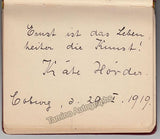 Ernst ist das Leben
heiter die Kunst!
Käte Hörder.
Coburg, d. 29. I. 1919
Tamino Autographs